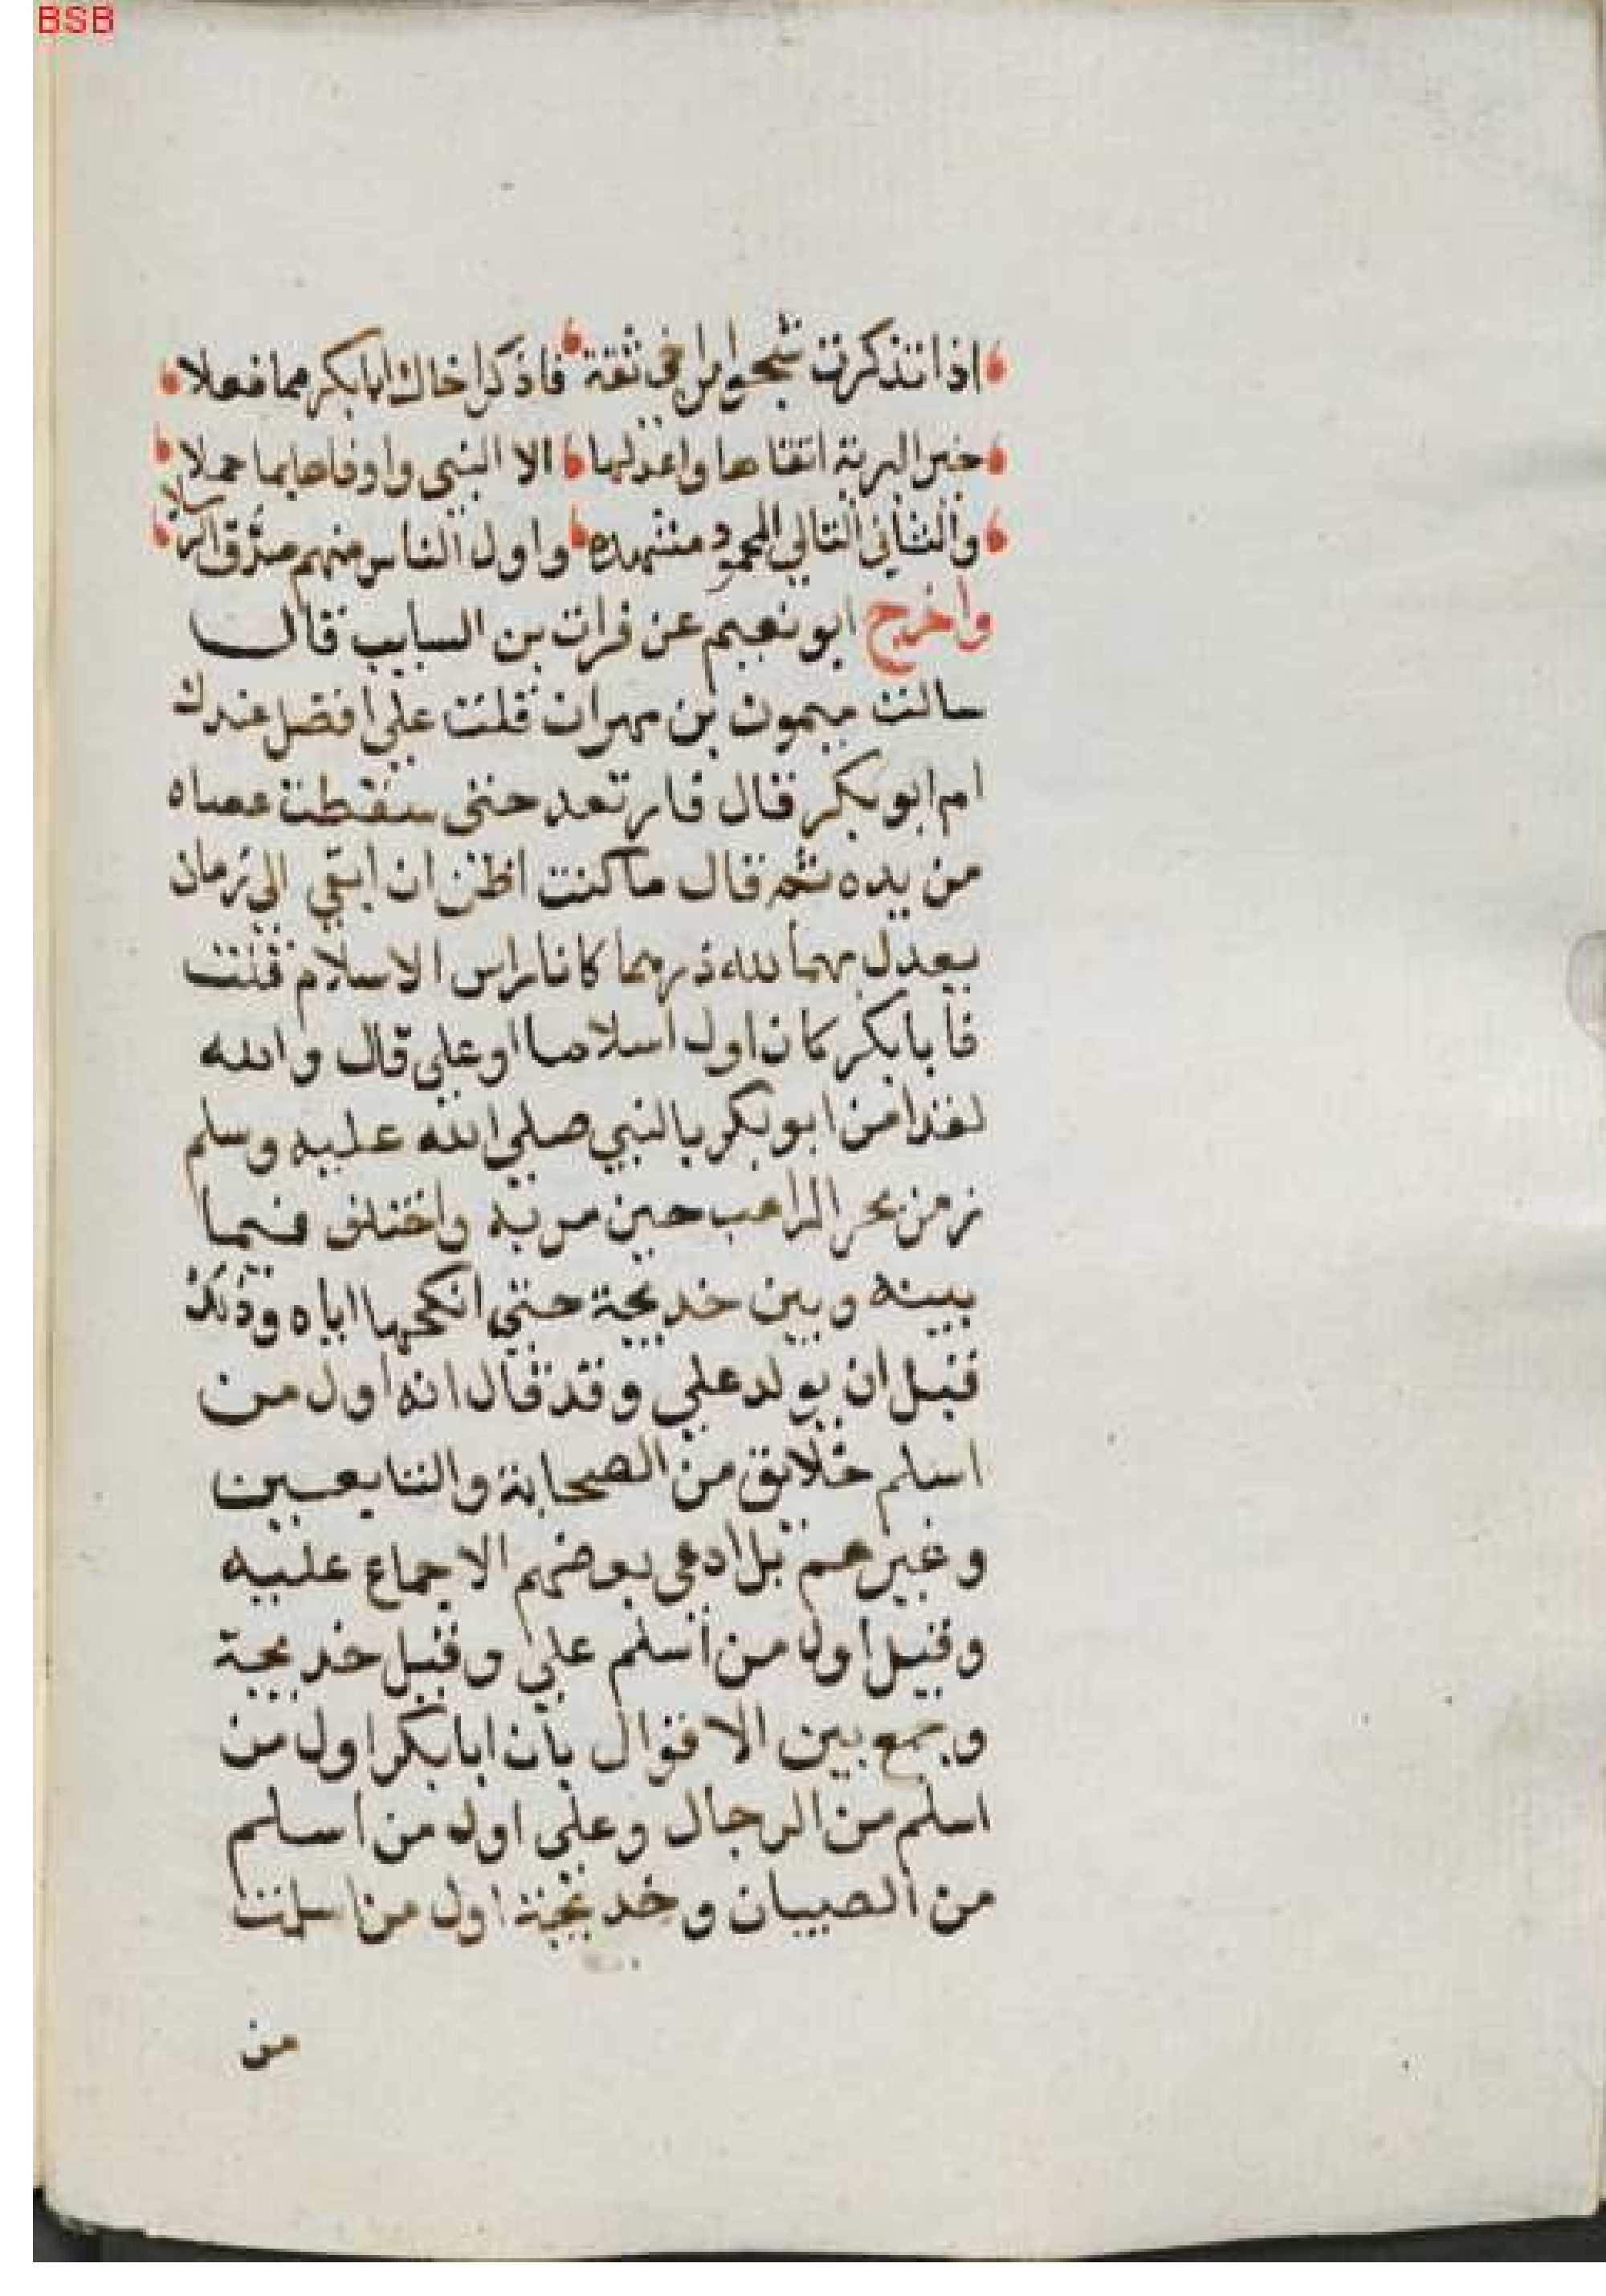 BSB
اذا تذكرت شجوا من اخي ثقة فاذكر اخاك ابابكر مما فعلا
خير البرية اتقاها واعدلها الا النبي واوفاها بما حملا
والثاني التالي المحمود مشهده واول الناس منهم صدق الرسلا
واخرج ابو نعيم عن فرات بن السايب قال
سالت ميمون بن مهران قلت علي افضل عندك
ام ابو بكر قال فارتعد حتى سقطت عصاه
من يده ثم قال ما كنت اظن ان ابقي الي زمان
يعدل بهما لله ذرهما كانا راس الاسلام قلت
فابا بكر كان اول اسلاما او علي قال والله
لقد امن ابو بكر بالنبي صلي الله عليه وسلم
زمن بحر الراهب حين مر به واختلف فيما
بينه وبين خديجة حتي انكحها اياه وذلك
قبل ان يولد علي وقد قال انه اول من
اسلم خلايق من الصحابة والتابعين
وغيرهم بل ادعى بعضهم الاجماع عليه
وقيل اول من اسلم علي وقيل خديجة
ويجمع بين الاقوال بان ابابكر اول من
اسلم من الرجال وعلي اول من اسلم
من الصبيان وخديجة اول من اسلمت
من